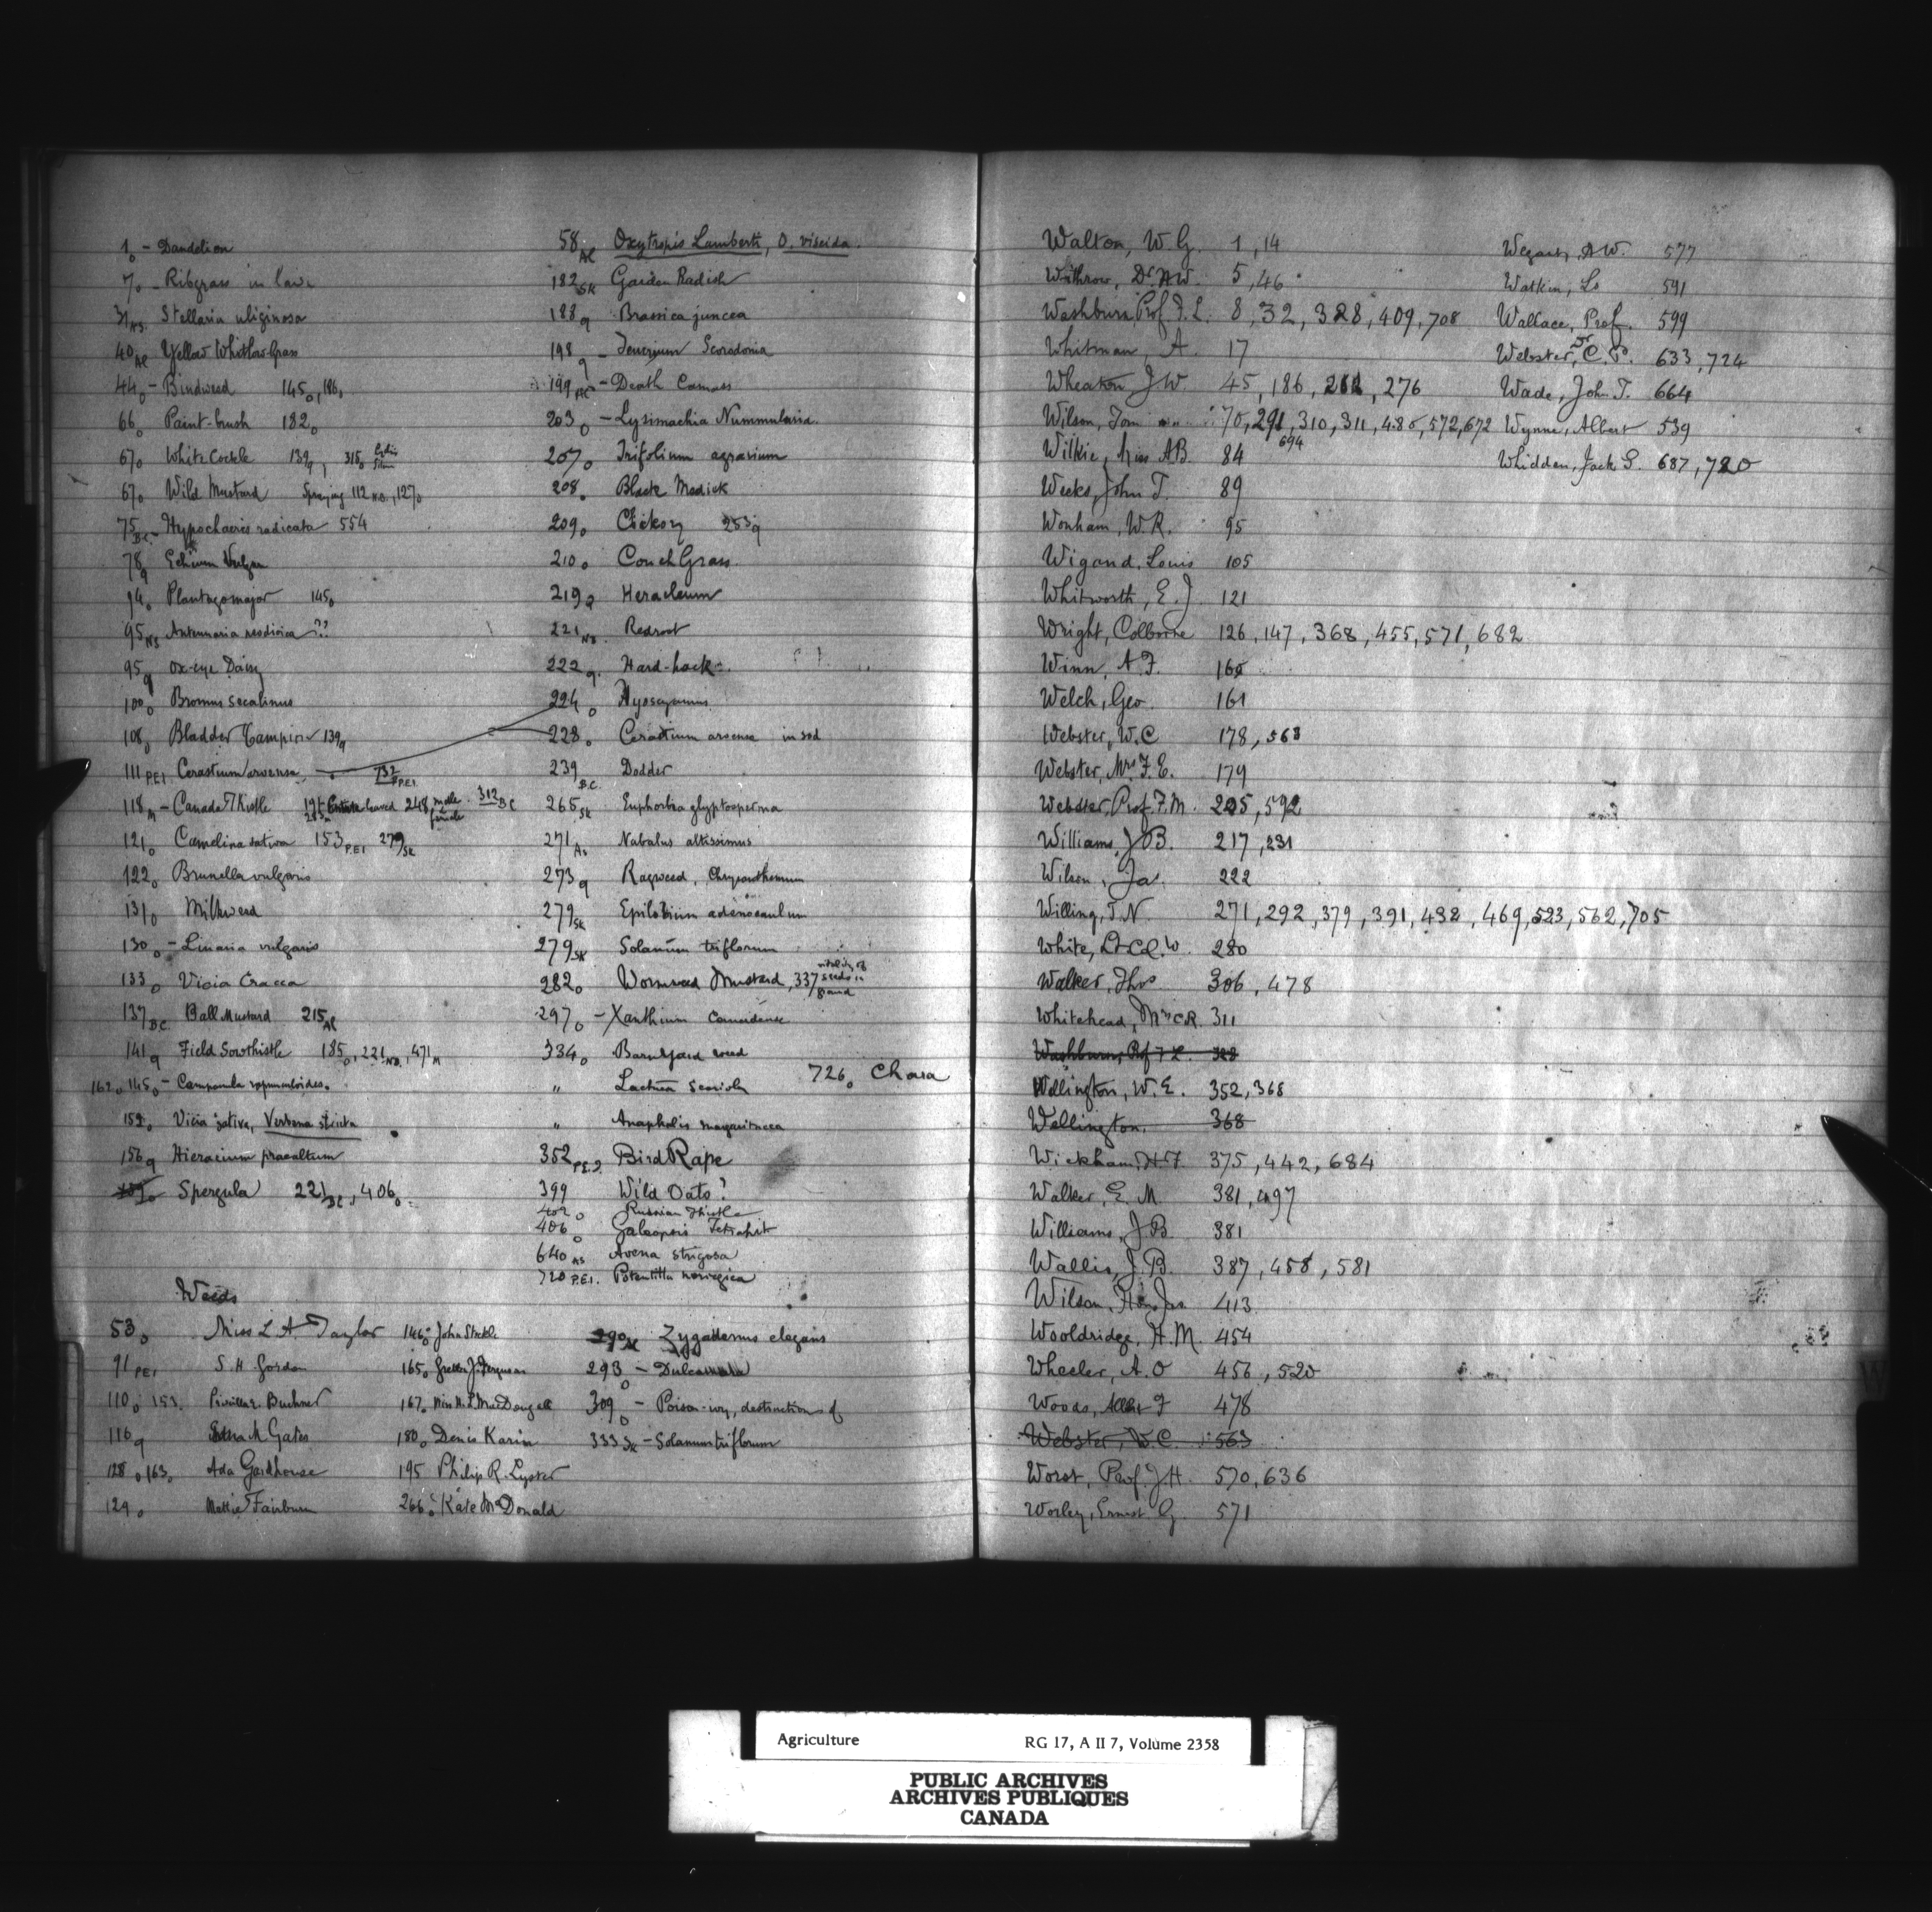 1o - Dandelion
7o - Ribgrass in lawn
31NS. Stellaria uliginosa
40Al Yellow Whitlow Grass
44o - Bindweed 145o, 186o
66o Paint-brush 182o
67o White Cockle 139q, 315o
67o Wild Mustard Spraying 112NB., 127o
75B.C. - Hypochaeris radicata 554
78q Echium Vulgare
94o Plantago major 145o
95NS Antennaria neodioica ??
95q Ox-eye Daisy
100o Bromus secalinus
108o Bladder Campion 139q
111P.E.I Cerastium arvense 732P.E.I.
118M - Canada Thistle leaved 248 male female 312BC
121o Camelina sativa 153P.E.I 279SK
122o Brunella vulgaris
131o Milkweed
130o - Linaria vulgaris
133o Vicia Cracca
137B.C. Ball Mustard 215Al
141q Field Sowthistle 185o, 221NB., 471M
162o, 145o - Campanula rapunculoides.
152o Vicia sativa, Verbena stricta
156q Hieracium praealtum
Spergula 221BC, 406o
58Al Oxytropis Lamberti, O. viscida.
182SK Garden Radish
188q Brassica juncea
198q - Teucrium Scorodonia
199 - Death Camass
203o - Lysimachia Nummularia.
207o Trifolium agrarium
208o Black Medick
209o Chickory 253q
210o Couch Grass.
219q Heracleum
221NB. Redroot
222q. Hard-hack
224o Hyoscyamus
228o Cerastium arvense in sod
239B.C. Dodder
265SK Euphorbia glyptosperma
271As Nabalus altissimus
273q Ragweed, Chrysanthemum
279SK Epilobium adenocaulon
279SK Solanum triflorum
282o Wormseed Mustard, 337 vitality of seeds in
297o - Xanthium Canadense
334o Barnyard weed
" Lactuca Scariola 726o Chara
" Anaphalis margaritacea
352P.E.I. Bird Rape
399 Wild Oats?
402o Russian Thistle
406o Galeopsis Tetrahit
640As Avena strigosa
720P.E.I. Potentilla norvegica
Weeds
53o Miss L A Taylor 146o John Steckle 290SK Zygadenus elegans
91PEI S. H. Gordon 165o J. Ferguson 293o - Dulcamara
110o 153. Buchner 167o Miss MacDougall 309o - Poison-ivy, destruction of
116q Gates 180o Denis Karin 333SK - Solanum triflorum
128o, 163o Ada Gardhouse 195 Philip R. Lyster
129o Mattie Fairburn 266o Kate McDonald
Walton, W. G. 1, 14
Withrow, Dr. A W. 5, 46
Washburn Prof. F. L. 8, 32, 328, 409, 708
Whitman, A. 17
Wheaton J W. 45, 186, 261, 276
Wilson, Tom 70, 291, 310, 311, 486, 572, 672
694
Wilkie, Miss A B 84
Weeks, John T. 89
Wonham, W. R. 95
Wigand, Louis 105
Whitworth, E. J 121
Wright, Colborne 126, 147, 368, 455, 571, 682
Winn, A. F. 160
Welch, Geo. 161
Webster, W. C 178, 563
Webster, Mrs F. E. 179
Webster, Prof. F. M. 205, 592
Williams, J B. 217, 231
Wilson, Jas. 222
Willing, T. N. 271, 292, 379, 391, 432, 469, 523, 562, 705
White, Lt-Col. W 280
Walker, Thos 306, 478
Whitehead, Mrs C R. 311
Washburn, Prof F L. 328
Wellington, W. E. 352, 368
Wellington, 368
Wickham, H F. 375, 442, 684
Walker, E. M 381, 497
Williams, J B 381
Wallis, J. B. 387, 458, 581
Wilson, Hon. Jas. 413
Wooldridge, H. M. 454
Wheeler, A. O 456, 520
Woods, Albert F 478
Webster, W. C. 563
Worst, Prof. J. H. 570, 636
Worley, Ernest G. 571
A W. 577
Watkin, 591
Wallace, Prof. 599
Webster, Dr C. P. 633, 724
Wade, John T. 664
Wynne, Albert 539
Whidden, Jack G. 687, 720
Agriculture RG 17, A II 7, Volume 2358
PUBLIC ARCHIVES
ARCHIVES PUBLIQUES
CANADA